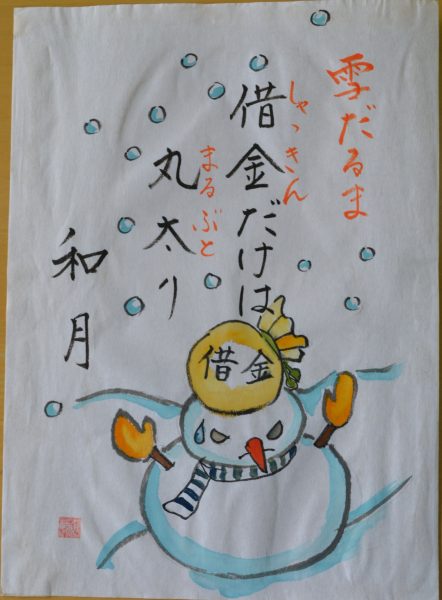 雪だるま
しゃっきん
借金だけは
まるぶと
丸太り
和月
借金